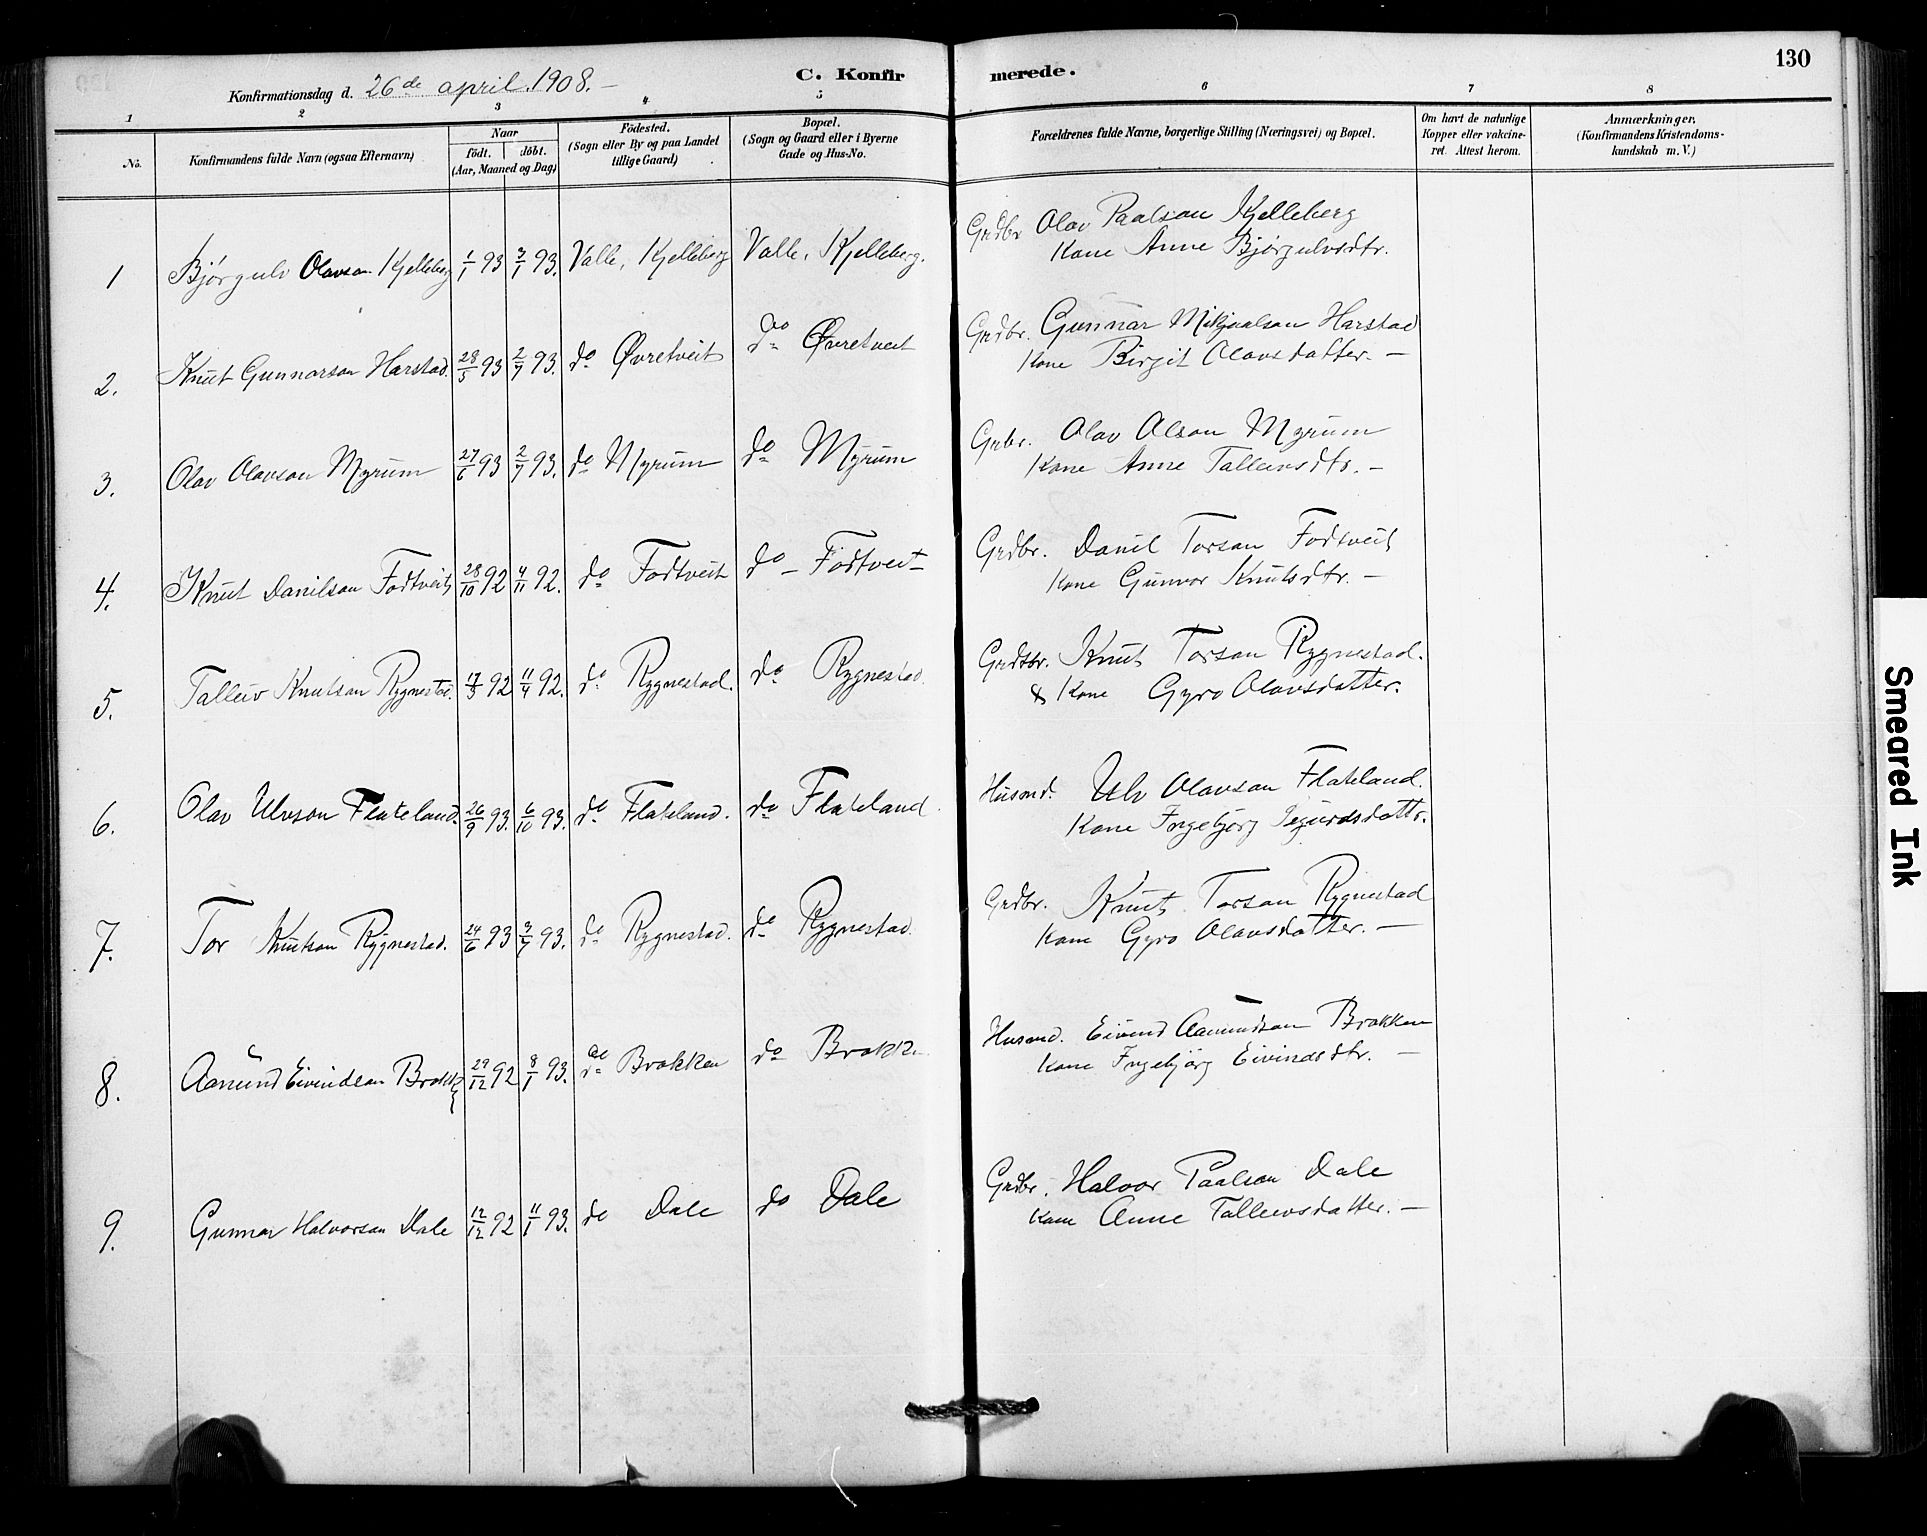 130
C. Konfirmerede.
Konfirmationsdag d. 26de april. 1908. —
1 2 3 4 5 6 7 8
No.
Konfirmandens fulde Navn (ogsaa Efternavn)
Naar
födt. döbt.
(Aar, Maaned og Dag)
Födested.
(Sogn eller By og paa Landet
tillige Gaard)
Bopæl.
(Sogn og Gaard eller i Byerne
Gade og Hus-No.
Forældrenes fulde Navne, borgerlige Stilling (Næringsvei) og Bopæl.
Om havt de naturlige
Kopper eller vakcine-
ret. Attest herom.
Anmærkninger.
(Konfirmandens Kristendoms-
kundskab m. V.)
1 Bjørgulv Olavson Kjelleberg 1/1 93 3/1 93. Valle, Kjelleberg Valle, Kjelleberg. Grdbr Olav Paalson Kjelleberg
Kone Anne Bjørgulvsdtr.
2. Knut Gunnarson Harstad. 28/5 93 2/7 93. do Øvretveit do Øvretveit Grdbr. Gunnar Mikjaalson Harstad
Kone Birgit Olavsdatter. —
3. Olav Olavson Myrum 27/6 93 2/7 93. do Myrum do Myrum Grbr. Olav Olson Myrum
Kone Anne Talleivsdtr. —
4. Knut Danilson Fodtveit 28/10 92 4/11 92. do Fodtveit do — Fodtveit Grdbr. Danil Torson Fodtveit
Kone Gunvor Knutsdtr. —
5. Talleiv Knutson Rygnestad. 17/3 92 11/4 92. do Rygnestad. do Rygnestad. Grdbr. Knut Torson Rygnestad.
& Kone Gyro Olavsdatter.
6. Olav Ulvson Flateland. 26/9 93. 6/10 93. do Flateland. do Flateland. Husmd. Ulv Olavson Flateland.
Kone Ingebjørg Sigurdsdattr.
7. Tor Knutson Rygnestad. 24/6 93 3/7 93. do Rygnestad. do Rygnestad. Grdbr. Knut Torson Rygnestad
Kone Gyro Olavsdatter. —
8. Aamund Eivindson Brokke 29/12 92 8/1 93. do Brokken do Brokke Husmd. Eivind Aamundson Brokken
Kone Ingebjørg Eivindsdtr. —
9. Gunnar Halvorson Dale 12/12 92 11/1 93. do Dale do Dale Grdbr. Halvor Paalson Dale
Kone Anne Talleivsdatter. —
Smeared Ink